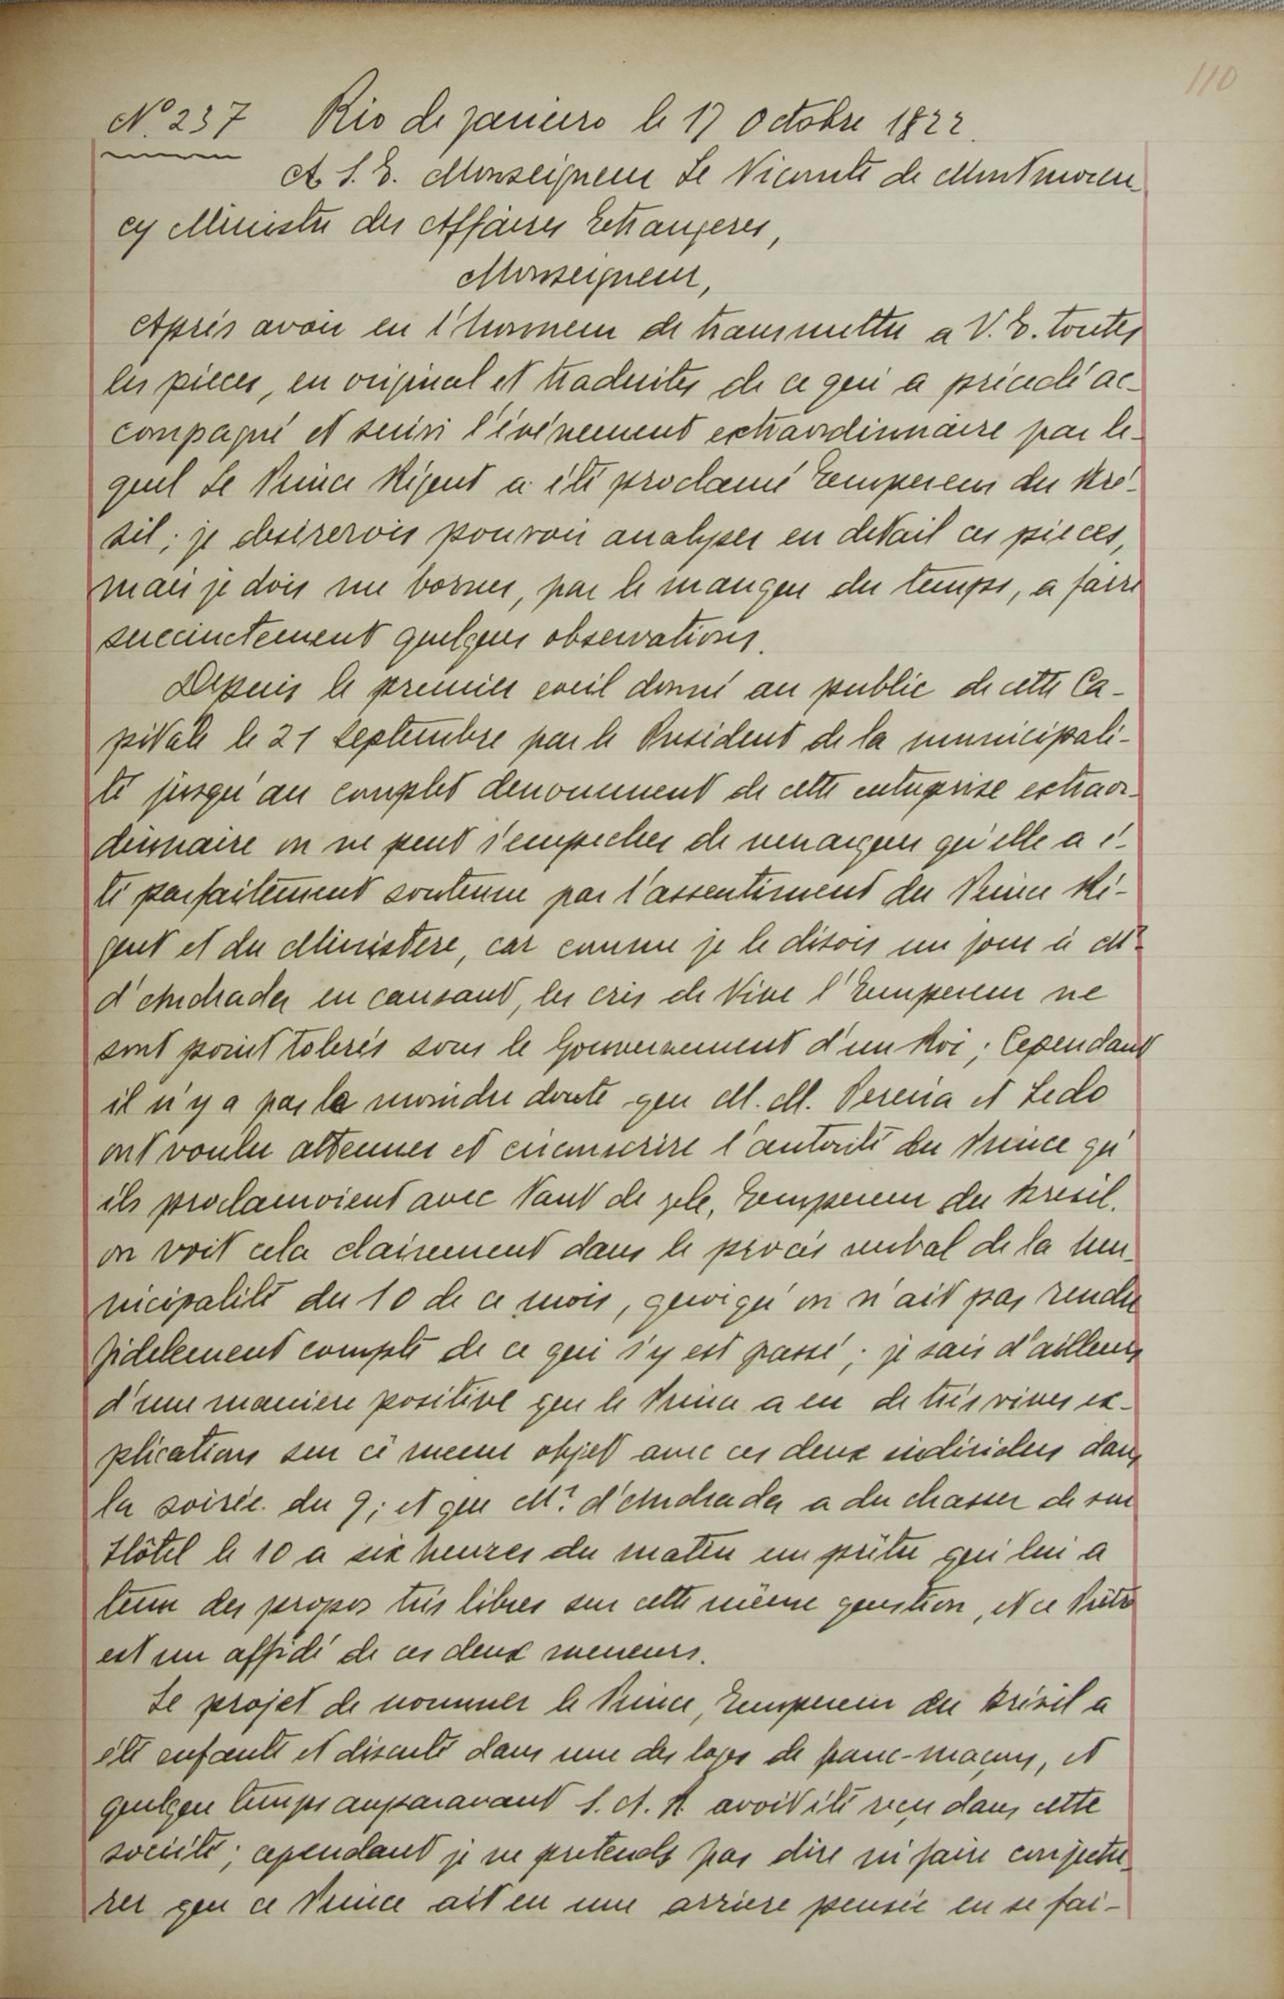 110
Nº 237 Rio de janeiro le 17 Octobre 1822.
A S. E. Monseigneur Le Vicomte de Montmoren-
cy Ministre des Affaires Etrangeres,
Monseigneur,
Après avoir eu l'honneur de transmettre a V. E. toutes
les pieces, en original et traduites, de ce qui a précedé ac-
compagné et suivi l'événement extraordinnaire par le-
quel Le Prince Régent a été proclamé Empereur du Bré-
sil; je desirerois pouvoir analyser en detail ces pieces,
mais je dois me borner, par le manque du temps, a faire
succinctement quelques observations.
Depuis le premier eveil donné au public de cette Ca-
pitale le 21 Septembre par le President de la municipali-
té jusqu'au complet denouement de cette entreprise extraor-
dinnaire on ne peut s'empecher de remarquer qu'elle a é-
té parfaitement soutenue par l'assentiment du Prince Ré-
gent et du Ministere, car comme je le disois un jour à Mr
d'Andrada en causant, les cris de Vive l'Empereur ne
sont point tolerés sous le Gouvernement d'un Roi; Cependant
il n'y a pas le moindre doute que M. M. Pereira et Ledo
ont voulu attenuer et circonscrire l'autorité du Prince qu'
ils proclamoient avec tant de zele, Empereur du Bresil.
on voit cela clairement dans le procès verbal de la mu-
nicipalité du 10 de ce mois, quoiqu'on n'ait pas rendu
fidelement compte de ce qui s'y est passé; je sais d'ailleurs
d'une maniere positive que le Prince a eu de très vives ex-
plications sur ce meme objet avec ces deux individus dans
la soirée du 9; et que Mr d'Andrada a du chasser de son
Hôtel le 10 a six heures du matin un prêtre qui lui a
tenu des propos très libres sur cette même question, et ce Prêtre
est un affidé de ces deux meneurs.
Le projet de nommer le Prince, Empereur du Brésil a
été enfanté et discuté dans une des loges de franc-maçons, et
quelque temps auparavant S. A. R. avoit été reçu dans cette
société; cependant je ne pretends pas dire ni faire conjectu-
rer que ce Prince ait eu une arriere pensée en se fai-